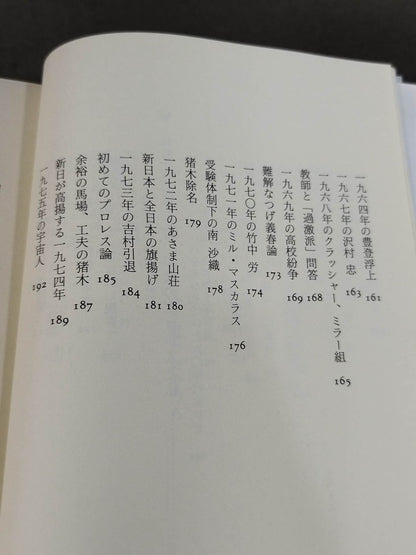 一九六四年の豊登浮上 161
一九六七年の沢村 忠 163
一九六八年のクラッシャー、ミラー組 165
教師と「過激派」問答 168
一九六九年の高校紛争 169
難解なつげ義春論 173
一九七〇年の竹中 労 174
一九七一年のミル・マスカラス 176
受験体制下の南 沙織 178
猪木除名 179
一九七二年のあさま山荘 180
新日本と全日本の旗揚げ 181
一九七三年の吉村引退 184
初めてのプロレス論 185
余裕の馬場、工夫の猪木 187
新日が高揚する一九七四年 189
一九七五年の宇宙人 192